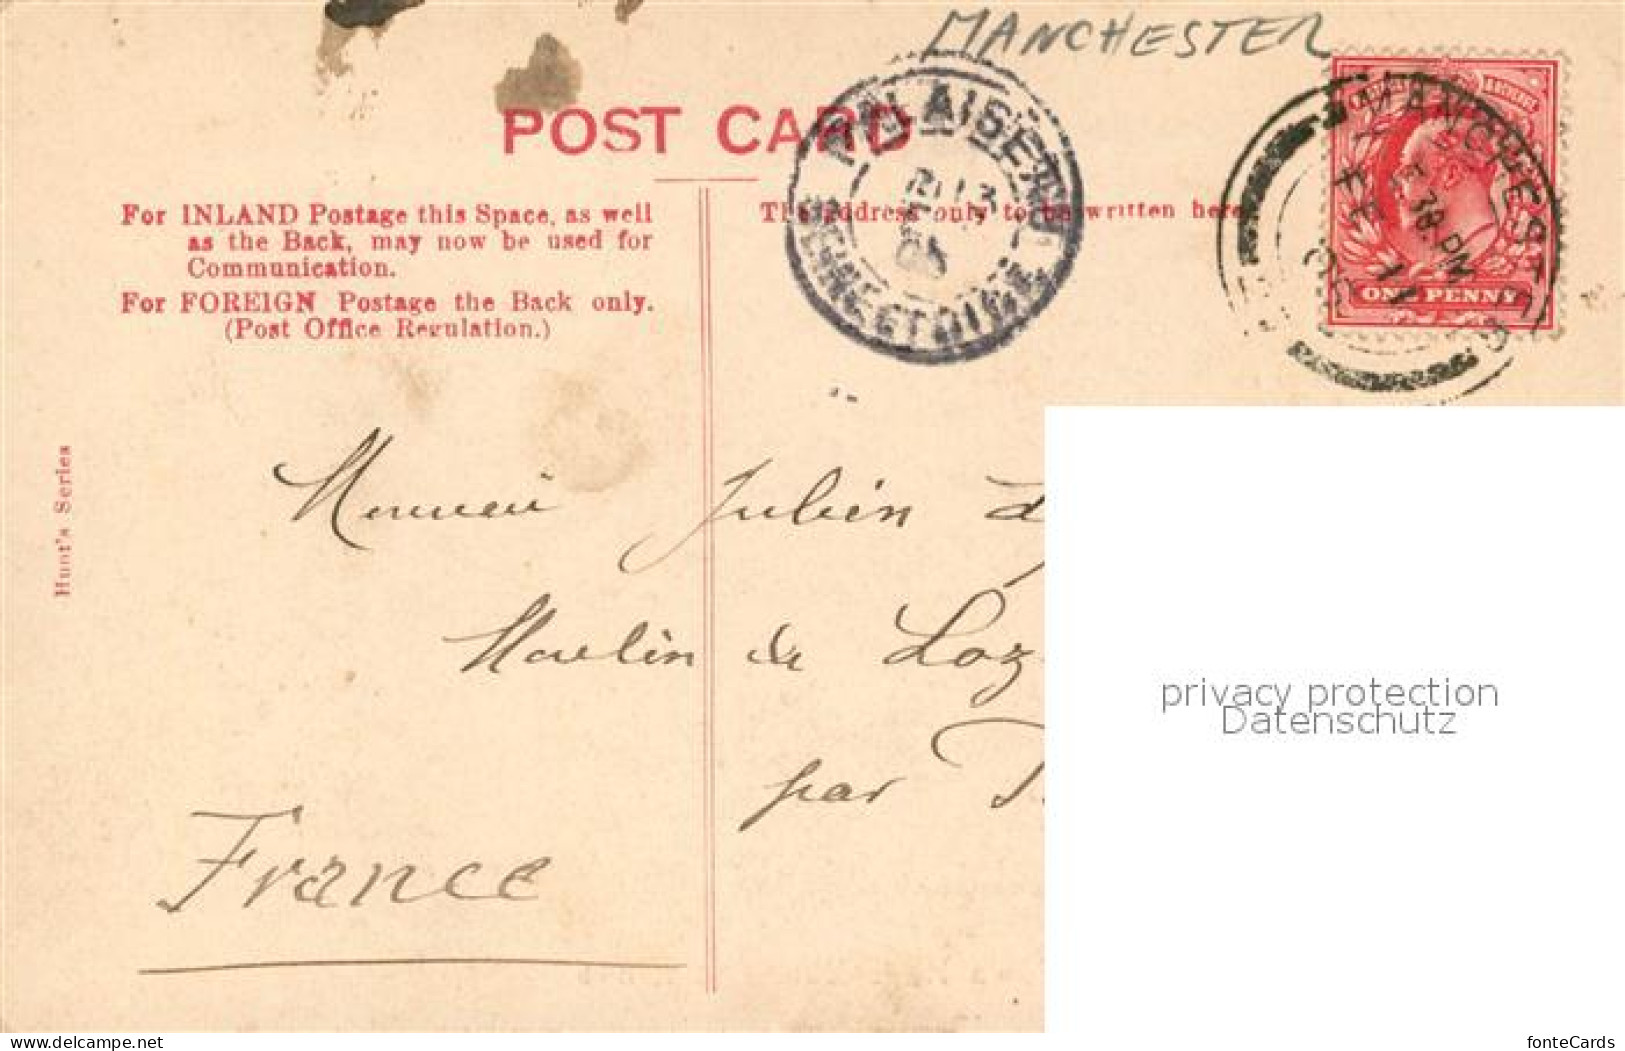 MANCHESTER
POST CARD
For INLAND Postage this Space, as well
as the Back, may now be used for
Communication.
For FOREIGN Postage the Back only.
(Post Office Regulation.)
The Address only to be written here
PALAISEAU
SEINE ET OISE
MANCHESTER
38.PM
ONE PENNY
Hunt's Series
Monsieur Julien
Moulin de Loz
par
France
privacy protection
Datenschutz
www.delcampe.net
fonteCards